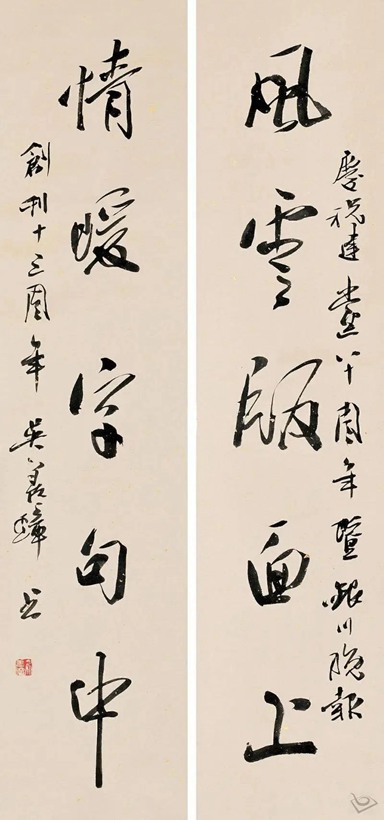 慶祝建黨八十周年暨銀川晚報
風雲版面上
情暖字句中
創刊十三周年 吳善璋